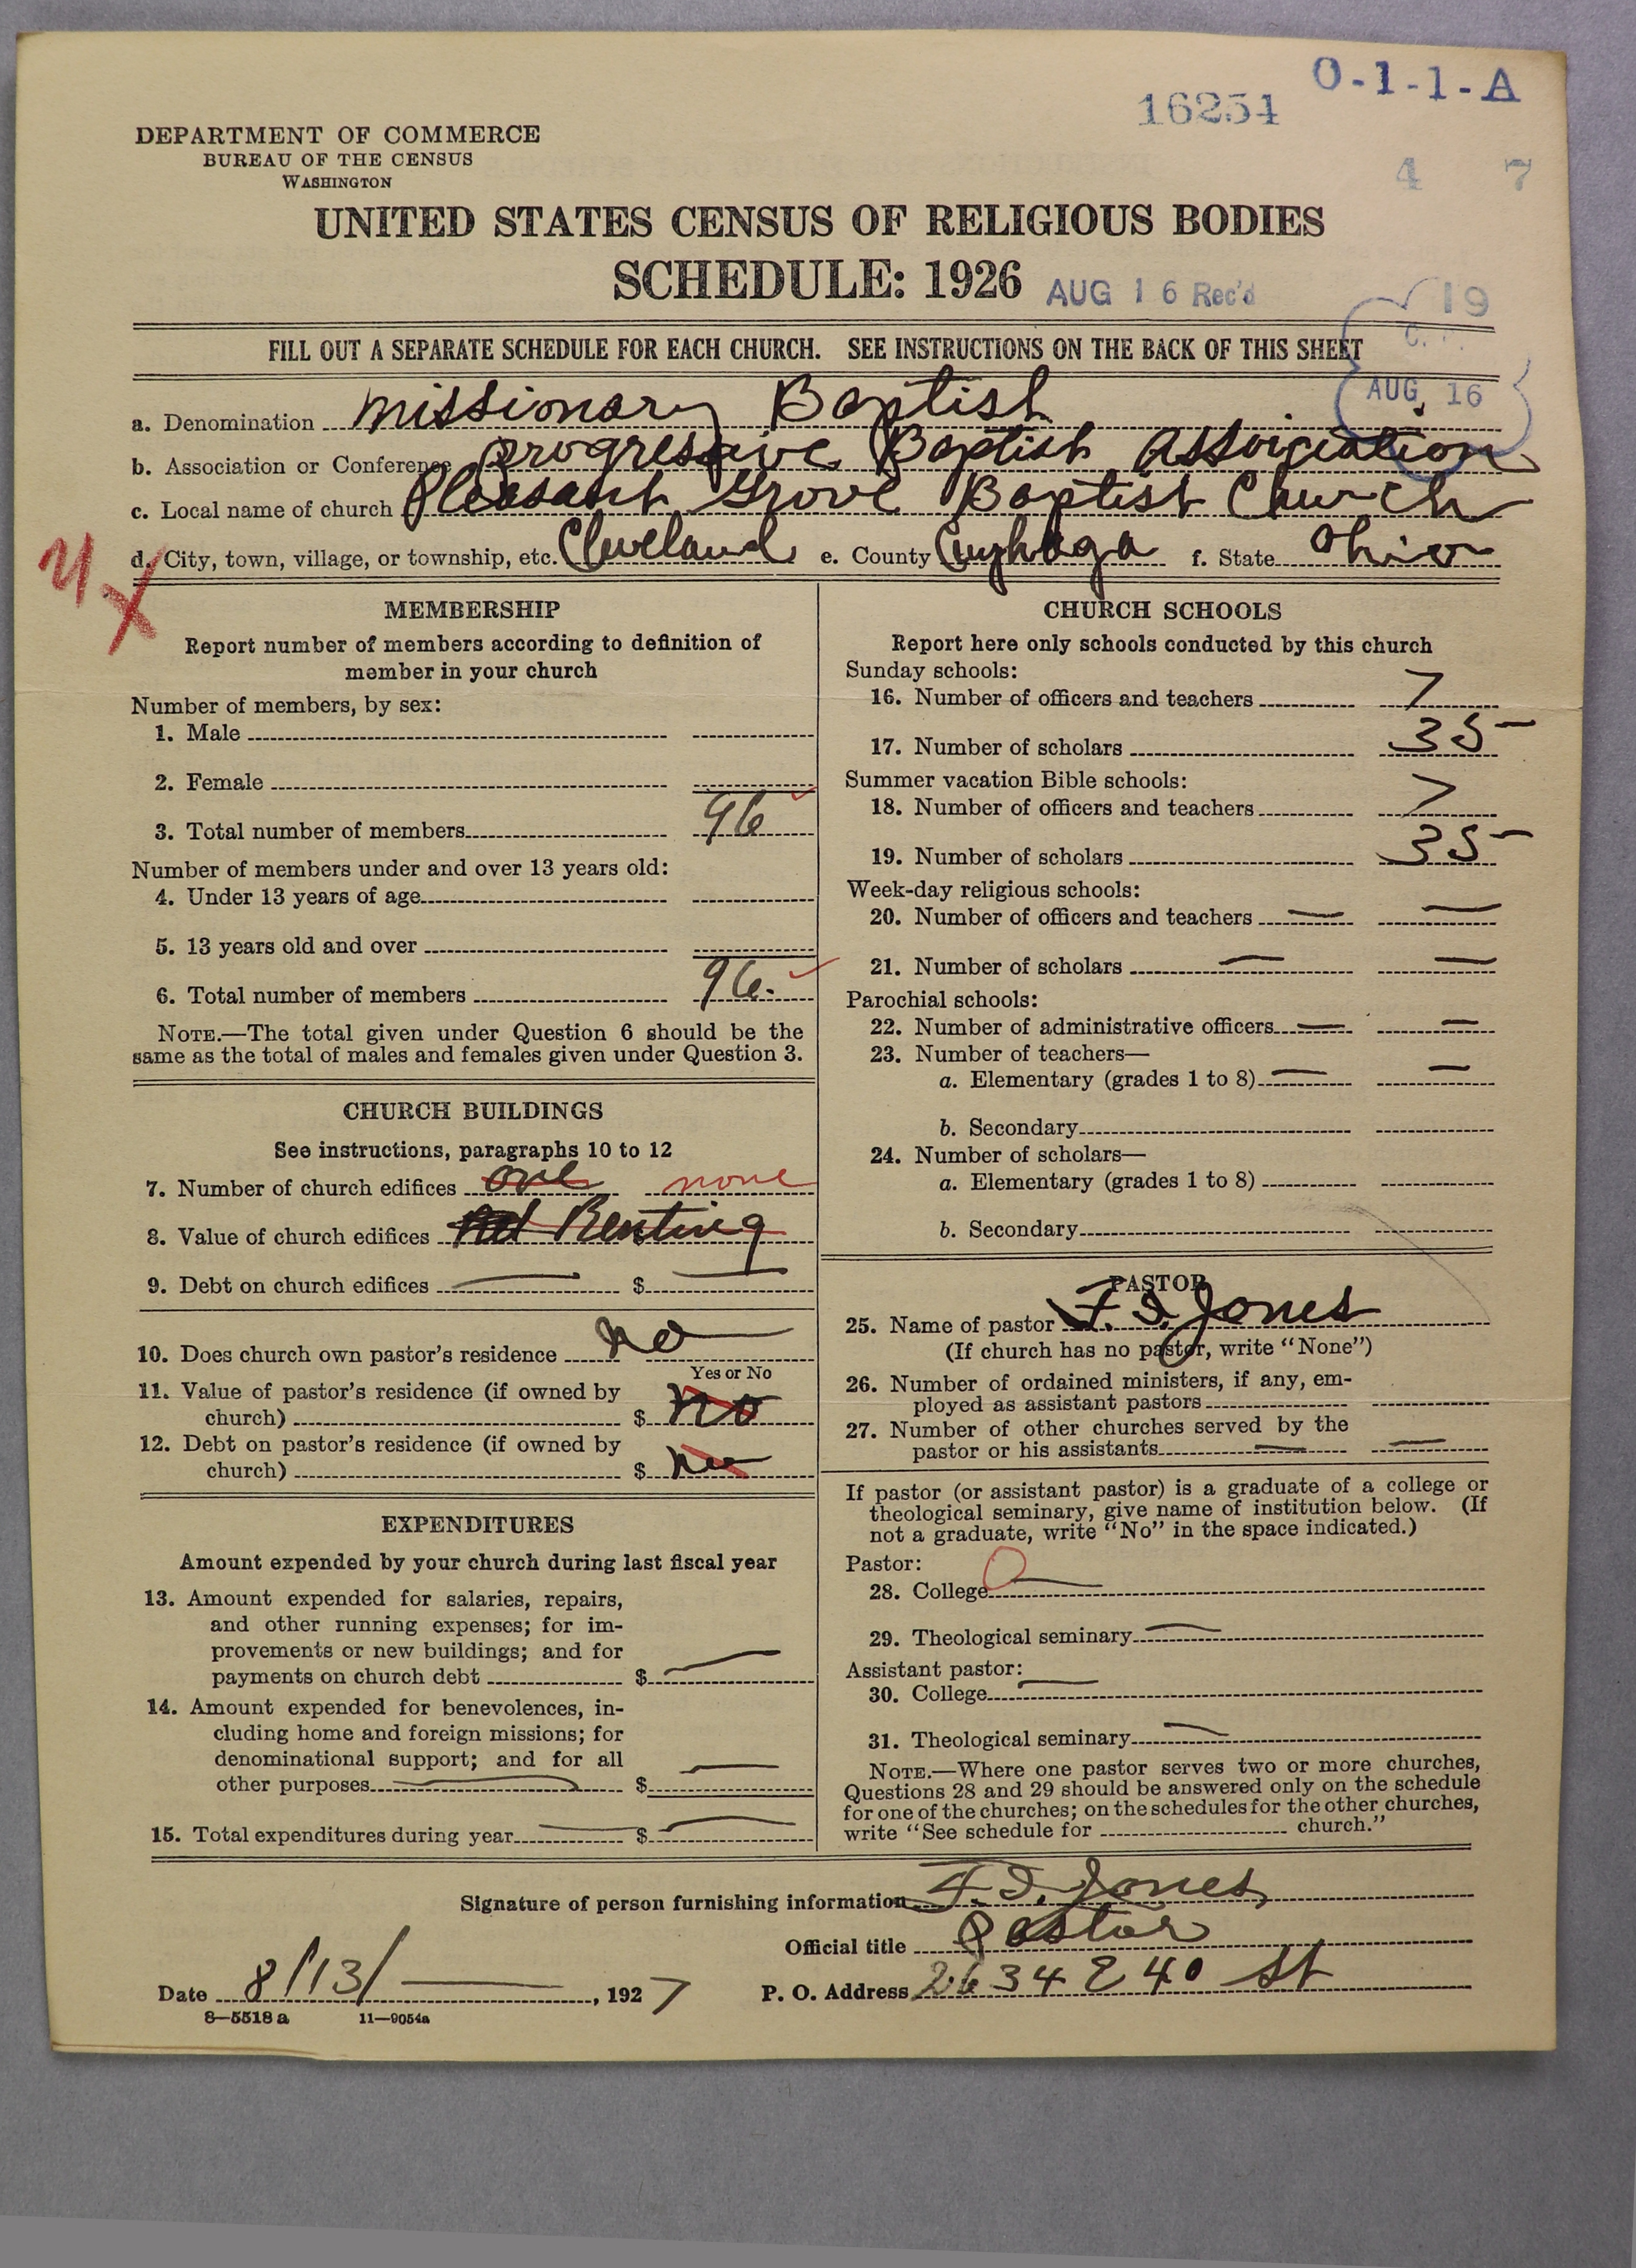 O-1-1-A
16254
4 7
DEPARTMENT OF COMMERCE
BUREAU OF THE CENSUS
WASHINGTON
UNITED STATES CENSUS OF RELIGIOUS BODIES
SCHEDULE: 1926 AUG 16 Rec'd
19
FILL OUT A SEPARATE SCHEDULE FOR EACH CHURCH. SEE INSTRUCTIONS ON THE BACK OF THIS SHEET
AUG 16
a. Denomination Missionary Baptist
b. Association or Conference Progresive Baptist Assoiciation
c. Local name of church Pleasant Grove Baptist Church
d. City, town, village, or township, etc. Cleveland e. County Cuyhoga f. State Ohio
MEMBERSHIP
Report number of members according to definition of
member in your church
Number of members, by sex:
1. Male
2. Female
3. Total number of members 96
Number of members under and over 13 years old:
4. Under 13 years of age
5. 13 years old and over
6. Total number of members 96.
NOTE.—The total given under Question 6 should be the
same as the total of males and females given under Question 3.
CHURCH BUILDINGS
See instructions, paragraphs 10 to 12
7. Number of church edifices one none
8. Value of church edifices Renting
9. Debt on church edifices — $ —
10. Does church own pastor's residence no —
Yes or No
11. Value of pastor's residence (if owned by
church) $ no
12. Debt on pastor's residence (if owned by
church) $ no
EXPENDITURES
Amount expended by your church during last fiscal year
13. Amount expended for salaries, repairs,
and other running expenses; for im-
provements or new buildings; and for
payments on church debt $ —
14. Amount expended for benevolences, in-
cluding home and foreign missions; for
denominational support; and for all
other purposes — $ —
15. Total expenditures during year — $ —
CHURCH SCHOOLS
Report here only schools conducted by this church
Sunday schools:
16. Number of officers and teachers 7
17. Number of scholars 35
Summer vacation Bible schools:
18. Number of officers and teachers 7
19. Number of scholars 35
Week-day religious schools:
20. Number of officers and teachers — —
21. Number of scholars — —
Parochial schools:
22. Number of administrative officers — —
23. Number of teachers—
a. Elementary (grades 1 to 8) — —
b. Secondary
24. Number of scholars—
a. Elementary (grades 1 to 8)
b. Secondary
PASTOR
25. Name of pastor F. D. Jones
(If church has no pastor, write "None")
26. Number of ordained ministers, if any, em-
ployed as assistant pastors
27. Number of other churches served by the
pastor or his assistants — —
If pastor (or assistant pastor) is a graduate of a college or
theological seminary, give name of institution below. (If
not a graduate, write "No" in the space indicated.)
Pastor:
28. College 0 —
29. Theological seminary —
Assistant pastor:
30. College —
31. Theological seminary —
NOTE.—Where one pastor serves two or more churches,
Questions 28 and 29 should be answered only on the schedule
for one of the churches; on the schedules for the other churches,
write "See schedule for church."
Signature of person furnishing information F. D. Jones
Official title Pastor
Date 8/13/ —, 1927 P. O. Address 2634 E 40 St
8—5518 a 11—9054a